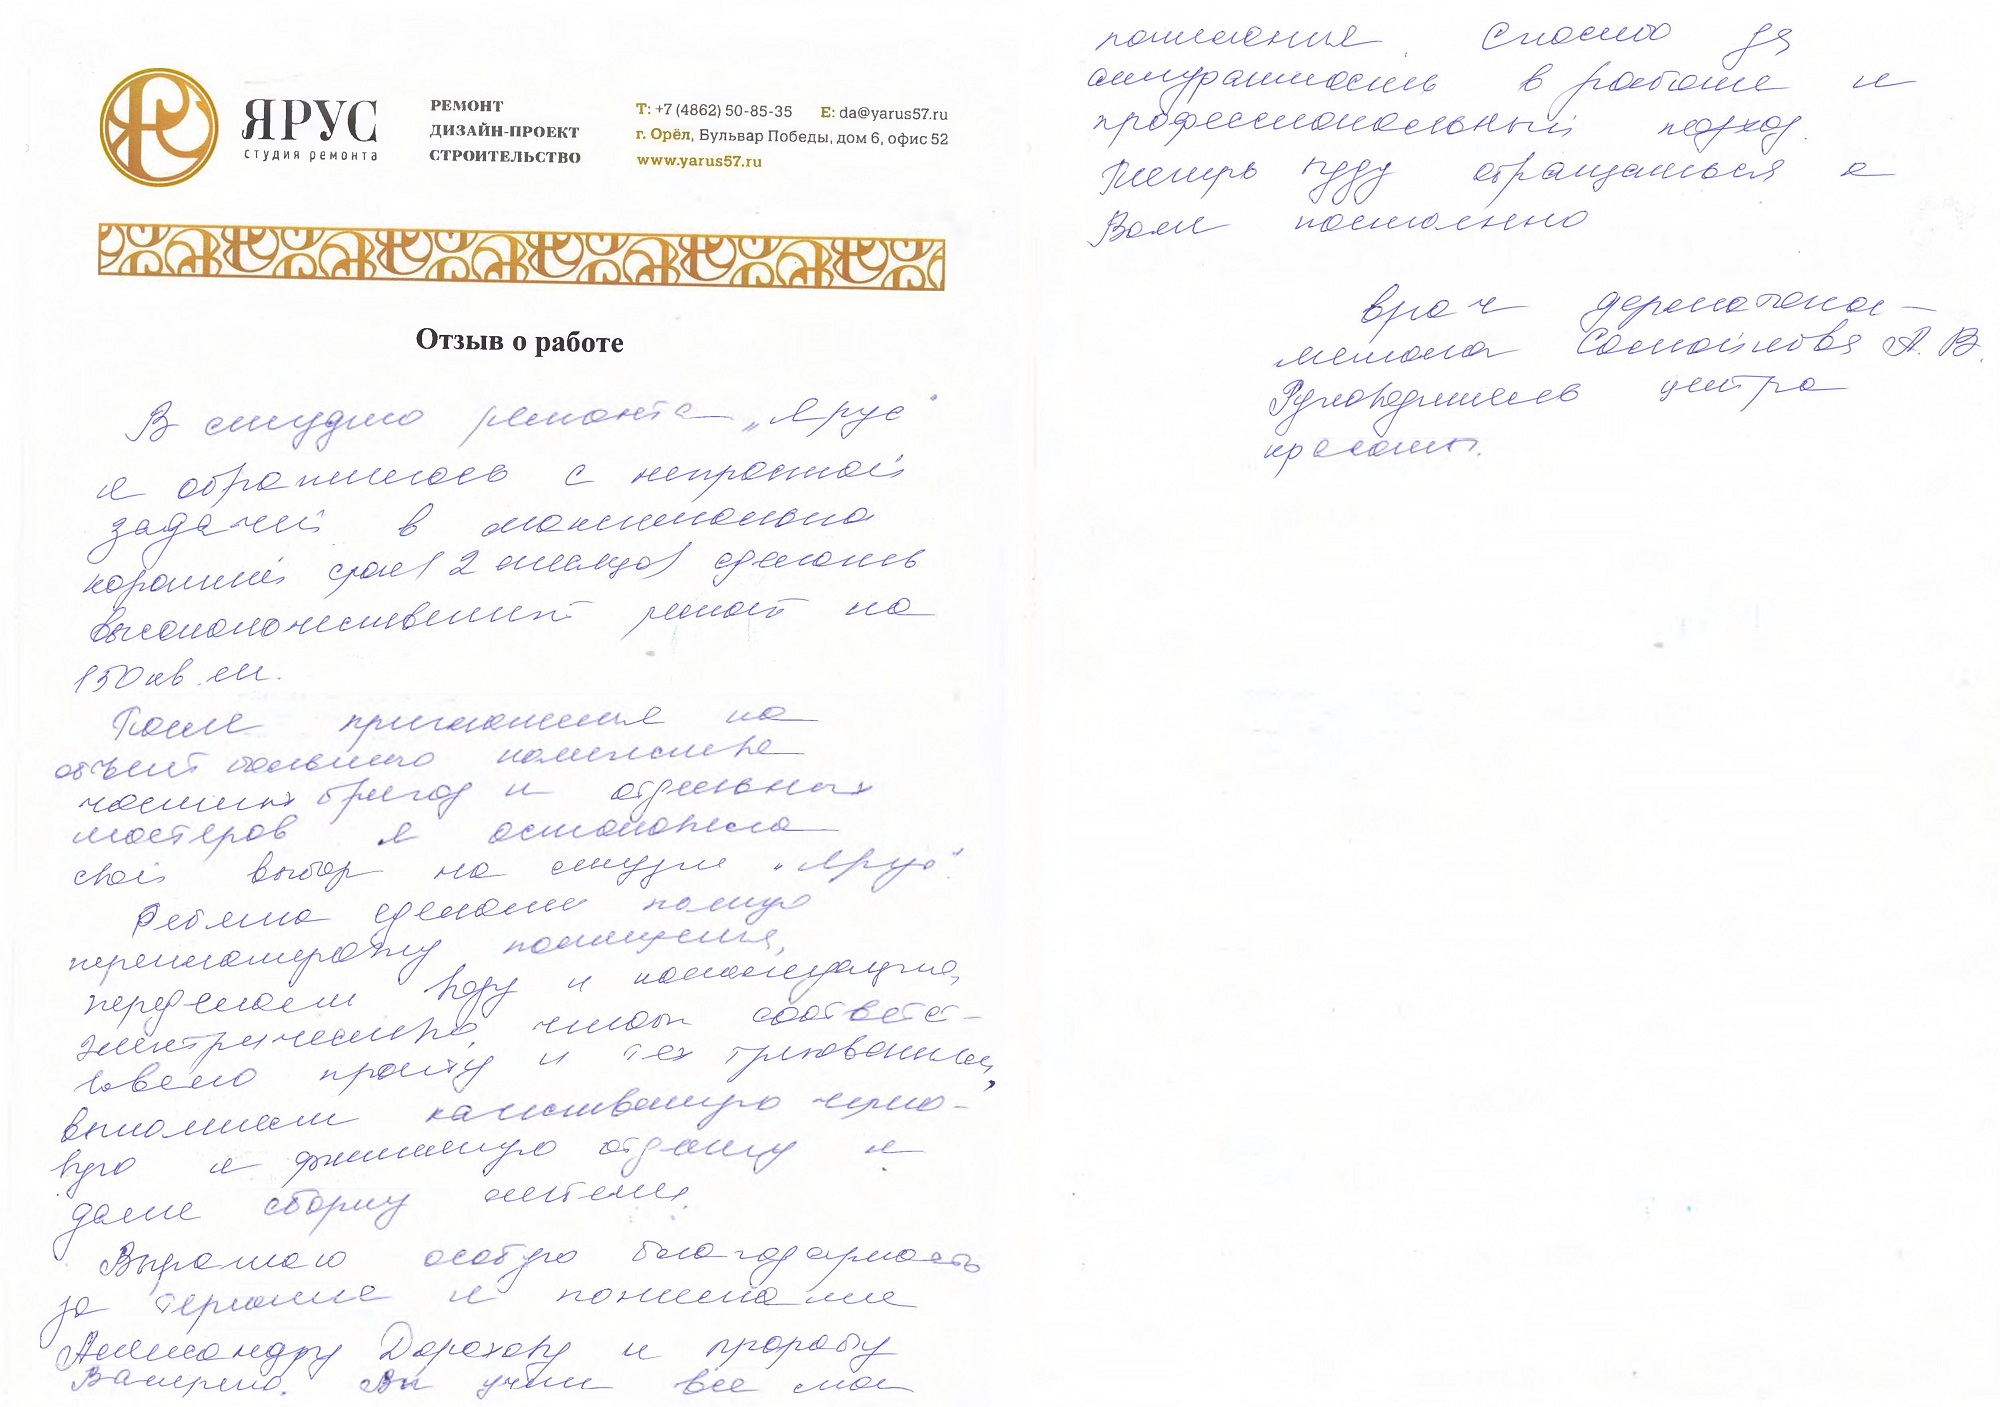 ЯРУС
студия ремонта
РЕМОНТ
ДИЗАЙН-ПРОЕКТ
СТРОИТЕЛЬСТВО
Т: +7 (4862) 50-85-35 E: da@yarus57.ru
г. Орёл, Бульвар Победы, дом 6, офис 52
www.yarus57.ru
Отзыв о работе
В студию ремонта „Ярус"
я обратилась с непростой
задачей в максимально
короткий срок (2 месяца) сделать
высококачественный ремонт на
150 кв. м.
После приглашения на
объект большого количества
частных бригад и отдельных
мастеров я остановила
свой выбор на студии „Ярус".
Ребята сделали полную
перепланировку помещения,
переделали воду и канализацию,
электричество, чтобы соответс-
овало проекту и тех требованиям,
выполнили качественную черно-
вую и финишную отделку и
даже сборку мебели.
Выражаю особую благодарность
за терпение и понимание
Александру Дорохову и прорабу
Валерию. Вы учли все мои
пожелания. Спасибо за
аккуратность в работе и
профессиональный подход.
Теперь буду обращаться к
Вам постоянно
врач дерматокос-
метолог Самойлова А. В.
Руководитель центра
красоты.